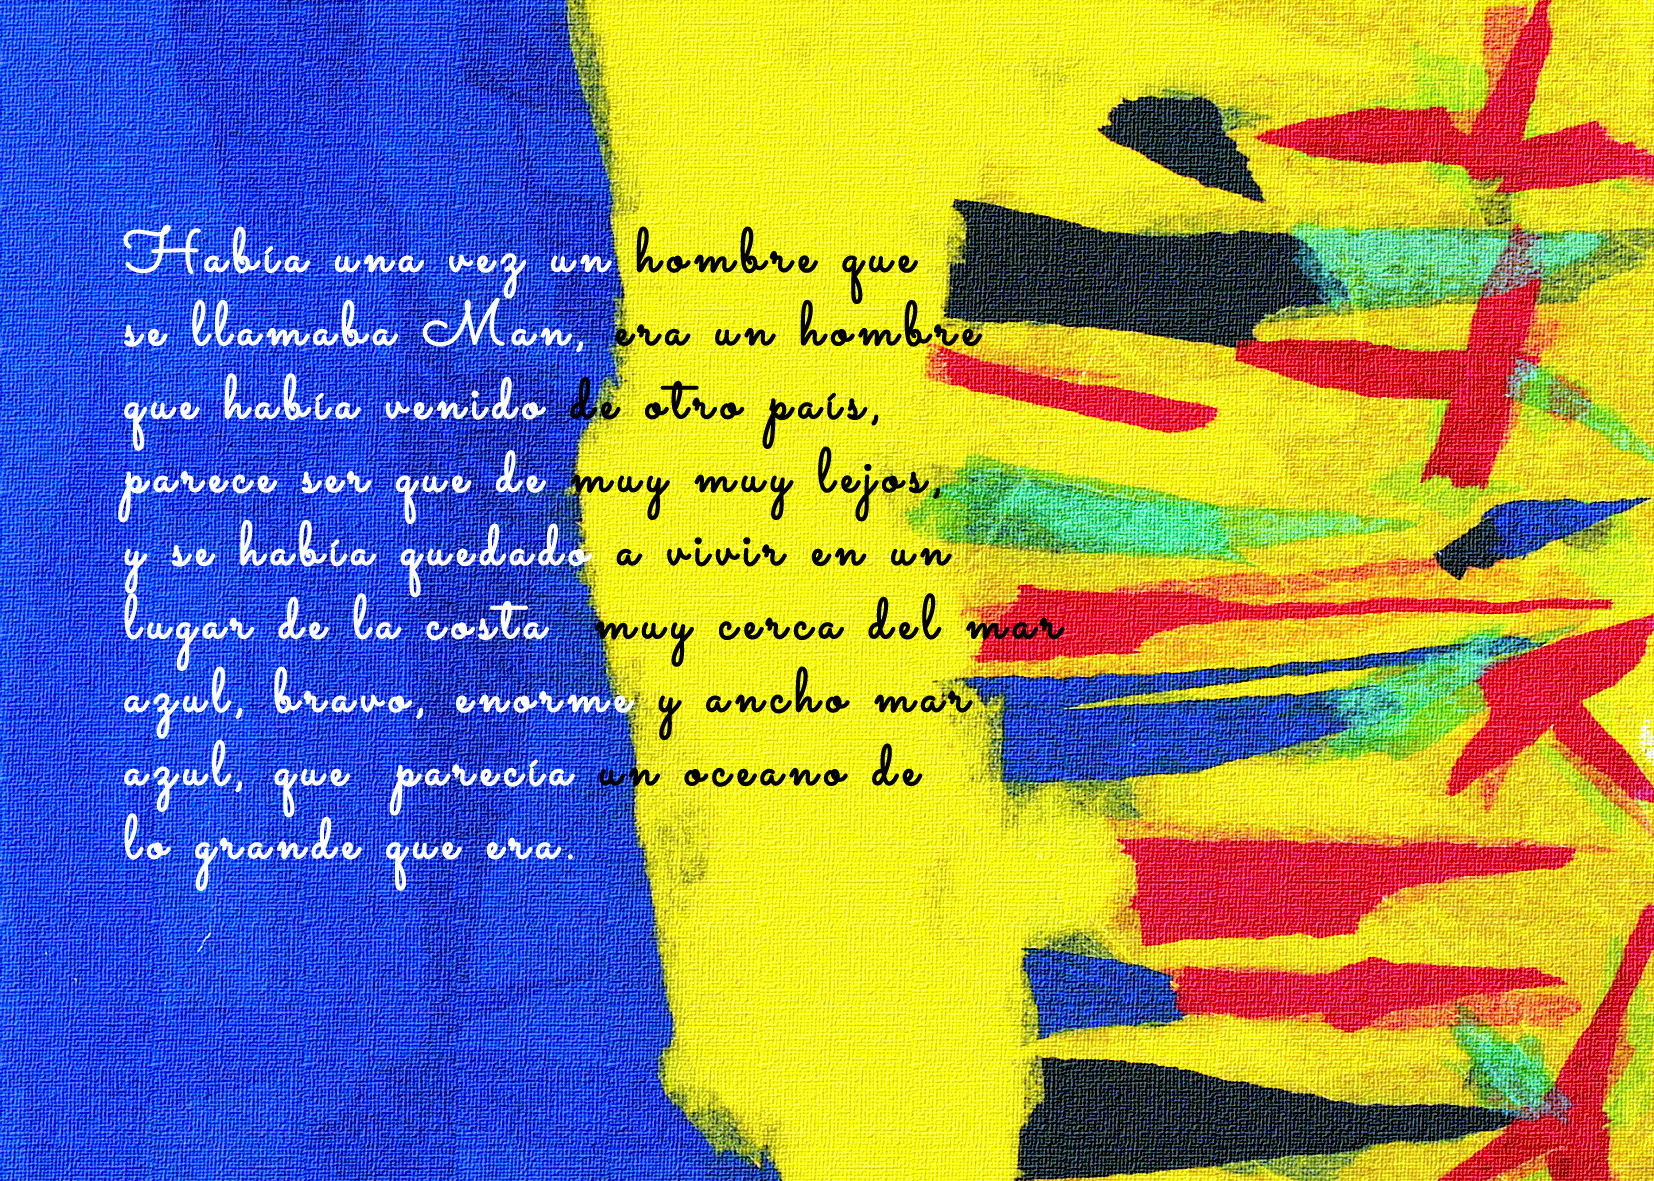 Había una vez un hombre que
se llamaba Man, era un hombre
que había venido de otro país,
parece ser que de muy muy lejos,
y se había quedado a vivir en un
lugar de la costa muy cerca del mar
azul, bravo, enorme y ancho mar
azul, que parecía un oceano de
lo grande que era.